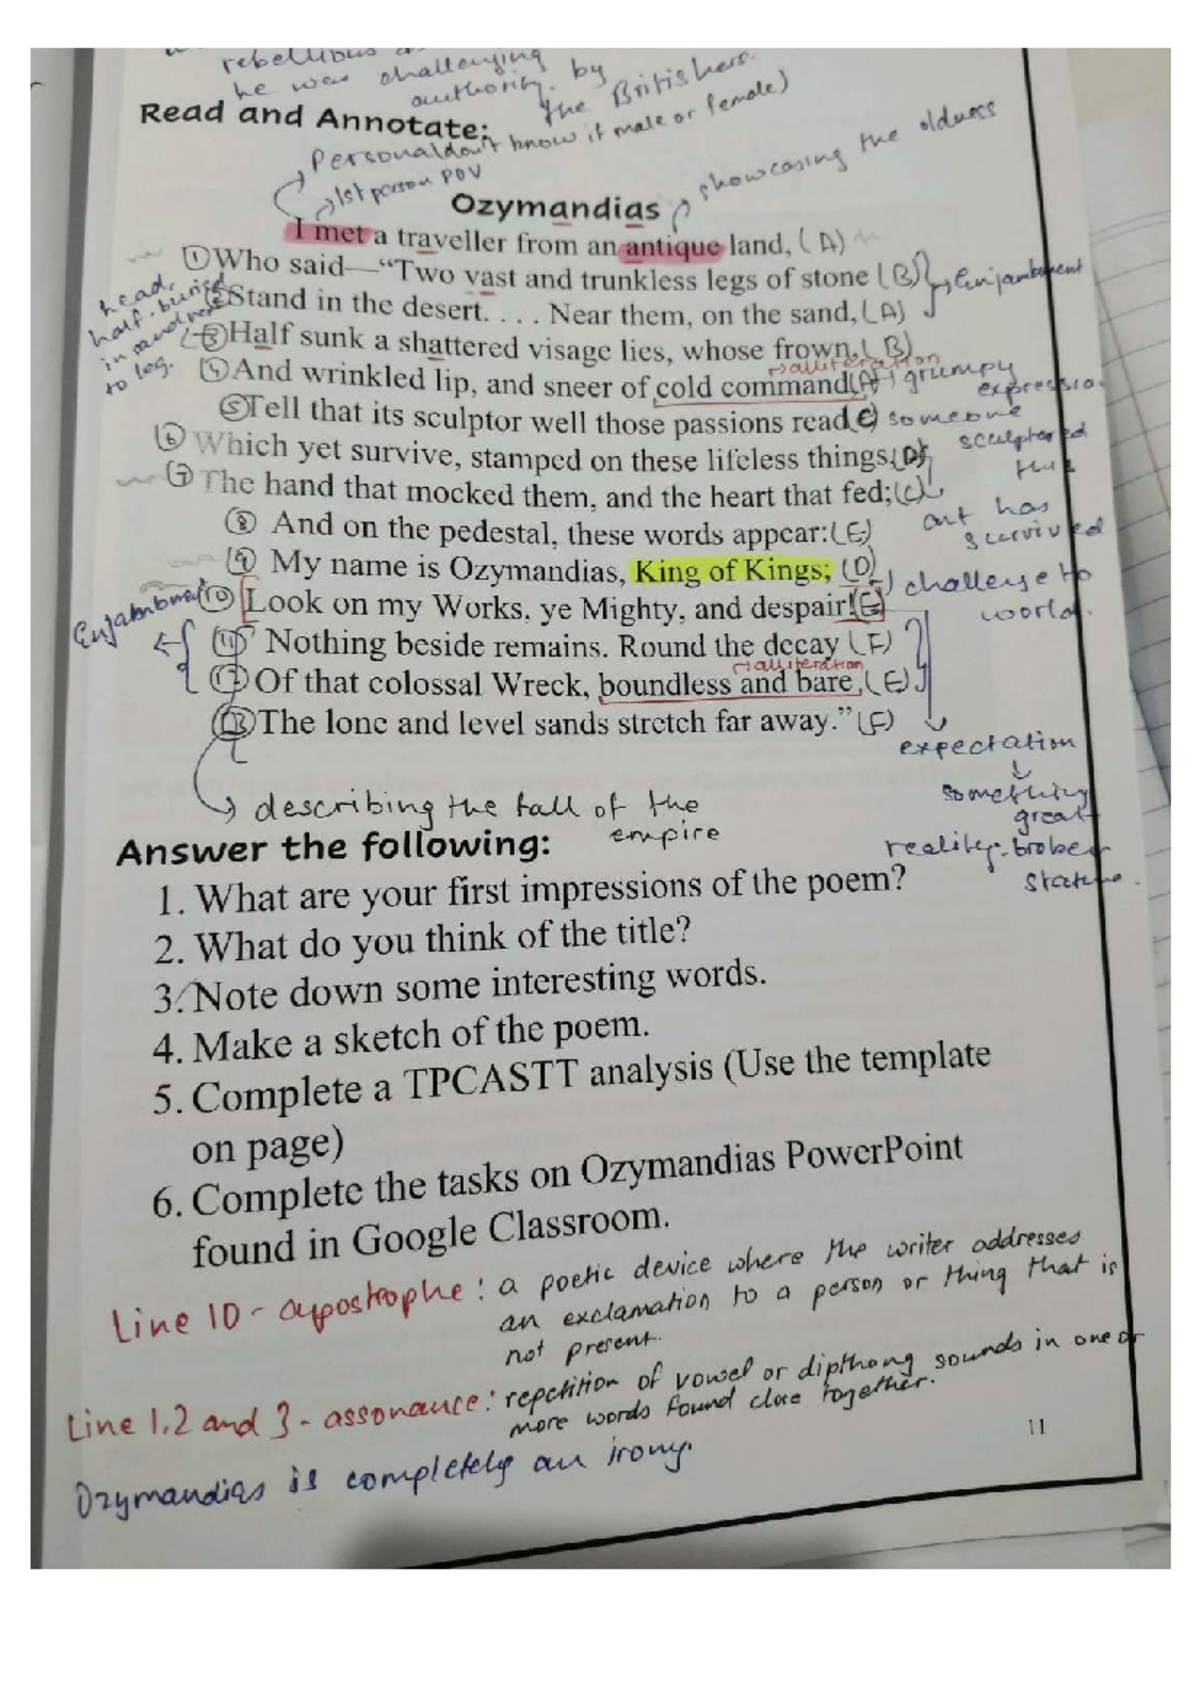 rebellious
he was challenging
authority. by
the Britishers.
Read and Annotate:
Persona don't know if male or female)
1st person POV
showcasing the oldness
Ozymandias
I met a traveller from an antique land, (A)
①Who said—“Two vast and trunkless legs of stone (B) Enjambment
②Stand in the desert. . . . Near them, on the sand, (A)
head
half-buried
in sand next
to leg.
③Half sunk a shattered visage lies, whose frown, (B)
alliteration
④And wrinkled lip, and sneer of cold command (A) grumpy
expression
⑤Tell that its sculptor well those passions read (C) someone
sculptored
this
⑥Which yet survive, stamped on these lifeless things, (D)
⑦The hand that mocked them, and the heart that fed; (C)
art has
survived
⑧ And on the pedestal, these words appear: (E)
⑨ My name is Ozymandias, King of Kings; (D)
challenge to
world.
Enjambment
⑩ Look on my Works, ye Mighty, and despair! (E)
⑪ Nothing beside remains. Round the decay (F)
alliteration
⑫ Of that colossal Wreck, boundless and bare (E)
⑬The lone and level sands stretch far away.” (F)
expectation
something
great
reality-broken
statue.
describing the fall of the
empire
Answer the following:
1. What are your first impressions of the poem?
2. What do you think of the title?
3. Note down some interesting words.
4. Make a sketch of the poem.
5. Complete a TPCASTT analysis (Use the template
on page)
6. Complete the tasks on Ozymandias PowerPoint
found in Google Classroom.
Line 10 - aypostrophe: a poetic device where the writer addresses
an exclamation to a person or thing that is
not present.
Line 1,2 and 3 - assonance: repetition of vowel or dipthong sounds in one or
more words found close together.
Ozymandias is completely an irony.
11